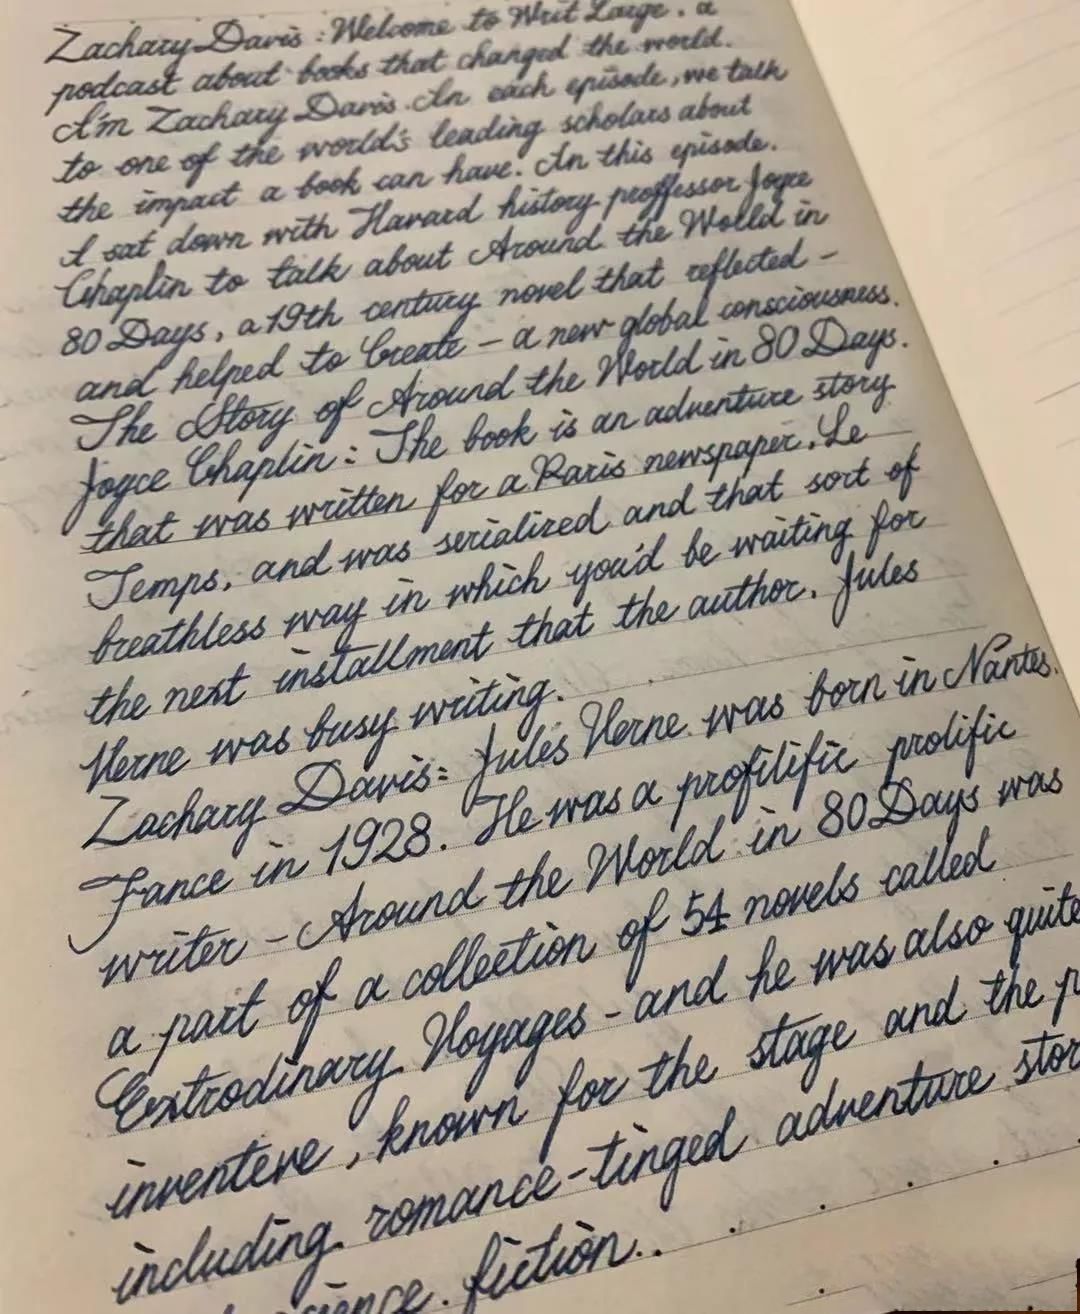 Zachary Davis : Welcome to Writ Large . a
podcast about books that changed the world.
I'm Zachary Davis . In each episode , we talk
to one of the world's leading scholars about
the impact a book can have . In this episode .
I sat down with Havard history proffessor Joyce
Chaplin to talk about Around the World in
80 Days , a 19th century novel that reflected -
and helped to Create - a new global consciousness .
The Story of Around the World in 80 Days .
Joyce Chaplin : The book is an adventure story
that was written for a Paris newspaper . Le
Temps , and was serialized and that sort of
breathless way in which you'd be waiting for
the next installment that the author . Jules
Verne was busy writing .
Zachary Davis : Jules Verne was born in Nantes .
France in 1928 . He was a profilific prolific
writer - Around the World in 80 Days was
a part of a collection of 54 novels called
Extrodinary Voyages - and he was also quite
inventeve , known for the stage and the
including romance-tinged adventure
fiction . .